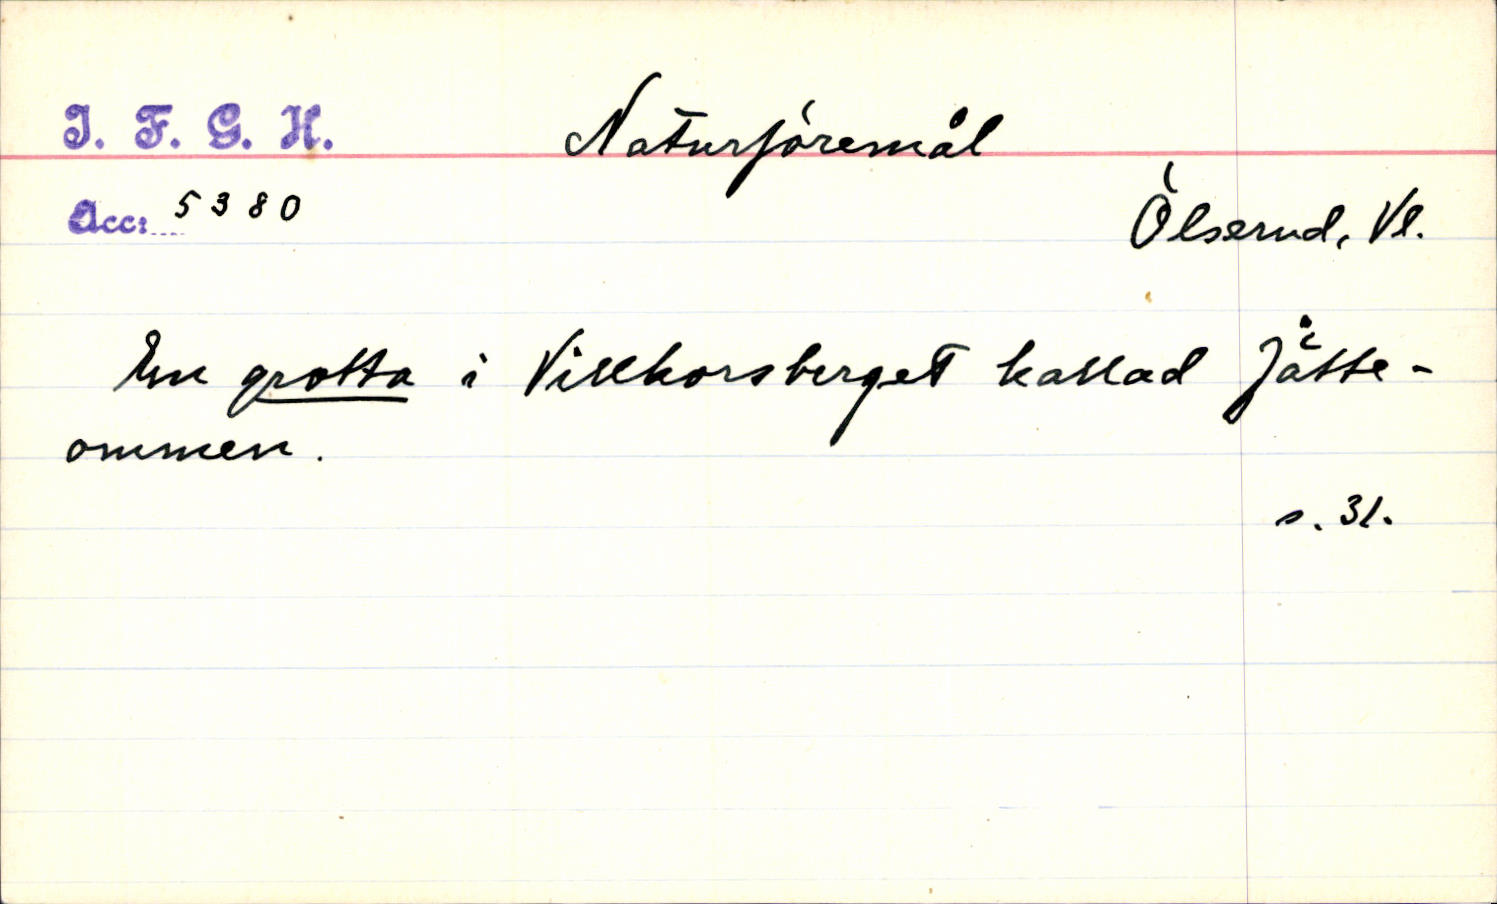 I. F. G. H.
Naturföremål
Acc: 5380
Ölserud, Vl.
En grotta i Villkorsberget kallad Jätte-
ommen.
s. 31.